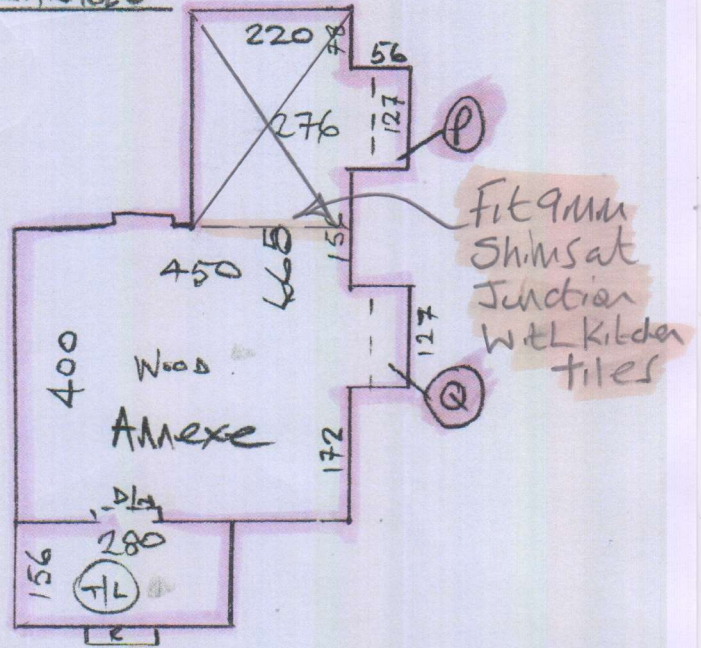 220
78
56
127
276
P
Fit 9mm
Shims at
Junction
With Kitchen
tiles
155
450
665
127
400
Wood
Q
Annexe
172
D/
280
156
T/L
R